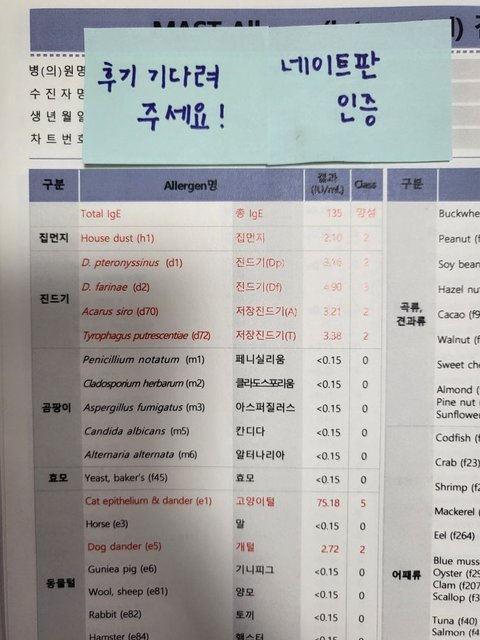 MAST Aller
후기 기다려
주세요!
네이트판
인증
병(의)원명
수진자명
생년월일
차트번호
구분 Allergen명 결과 (IU/mL) Class 구분
Total IgE 총 IgE 135 양성
집먼지 House dust (h1) 집먼지 2.10 2
진드기 D. pteronyssinus (d1) 진드기(Dp) 3.16 2
D. farinae (d2) 진드기(Df) 4.90 3
Acarus siro (d70) 저장진드기(A) 3.21 2
Tyrophagus putrescentiae (d72) 저장진드기(T) 3.38 2
곰팡이 Penicillium notatum (m1) 페니실리움 <0.15 0
Cladosporium herbarum (m2) 클라도스포리움 <0.15 0
Aspergillus fumigatus (m3) 아스퍼질러스 <0.15 0
Candida albicans (m5) 칸디다 <0.15 0
Alternaria alternata (m6) 알터나리아 <0.15 0
효모 Yeast, baker's (f45) 효모 <0.15 0
동물털 Cat epithelium & dander (e1) 고양이털 75.18 5
Horse (e3) 말 <0.15 0
Dog dander (e5) 개털 2.72 2
Guniea pig (e6) 기니피그 <0.15 0
Wool, sheep (e81) 양모 <0.15 0
Rabbit (e82) 토끼 <0.15 0
Hamster (e84) 햄스터 <0.15 0
곡류, 견과류
Buckwhe
Peanut (f
Soy bean
Hazel nut
Cacao (f9
Walnut (f
Sweet che
Almond (
Pine nut
Sunflower
어패류
Codfish (f
Crab (f23)
Shrimp (f2
Mackerel
Eel (f264)
Blue muss
Oyster (f29
Clam (f207
Scallop (f3
Tuna (f40)
Salmon (f4